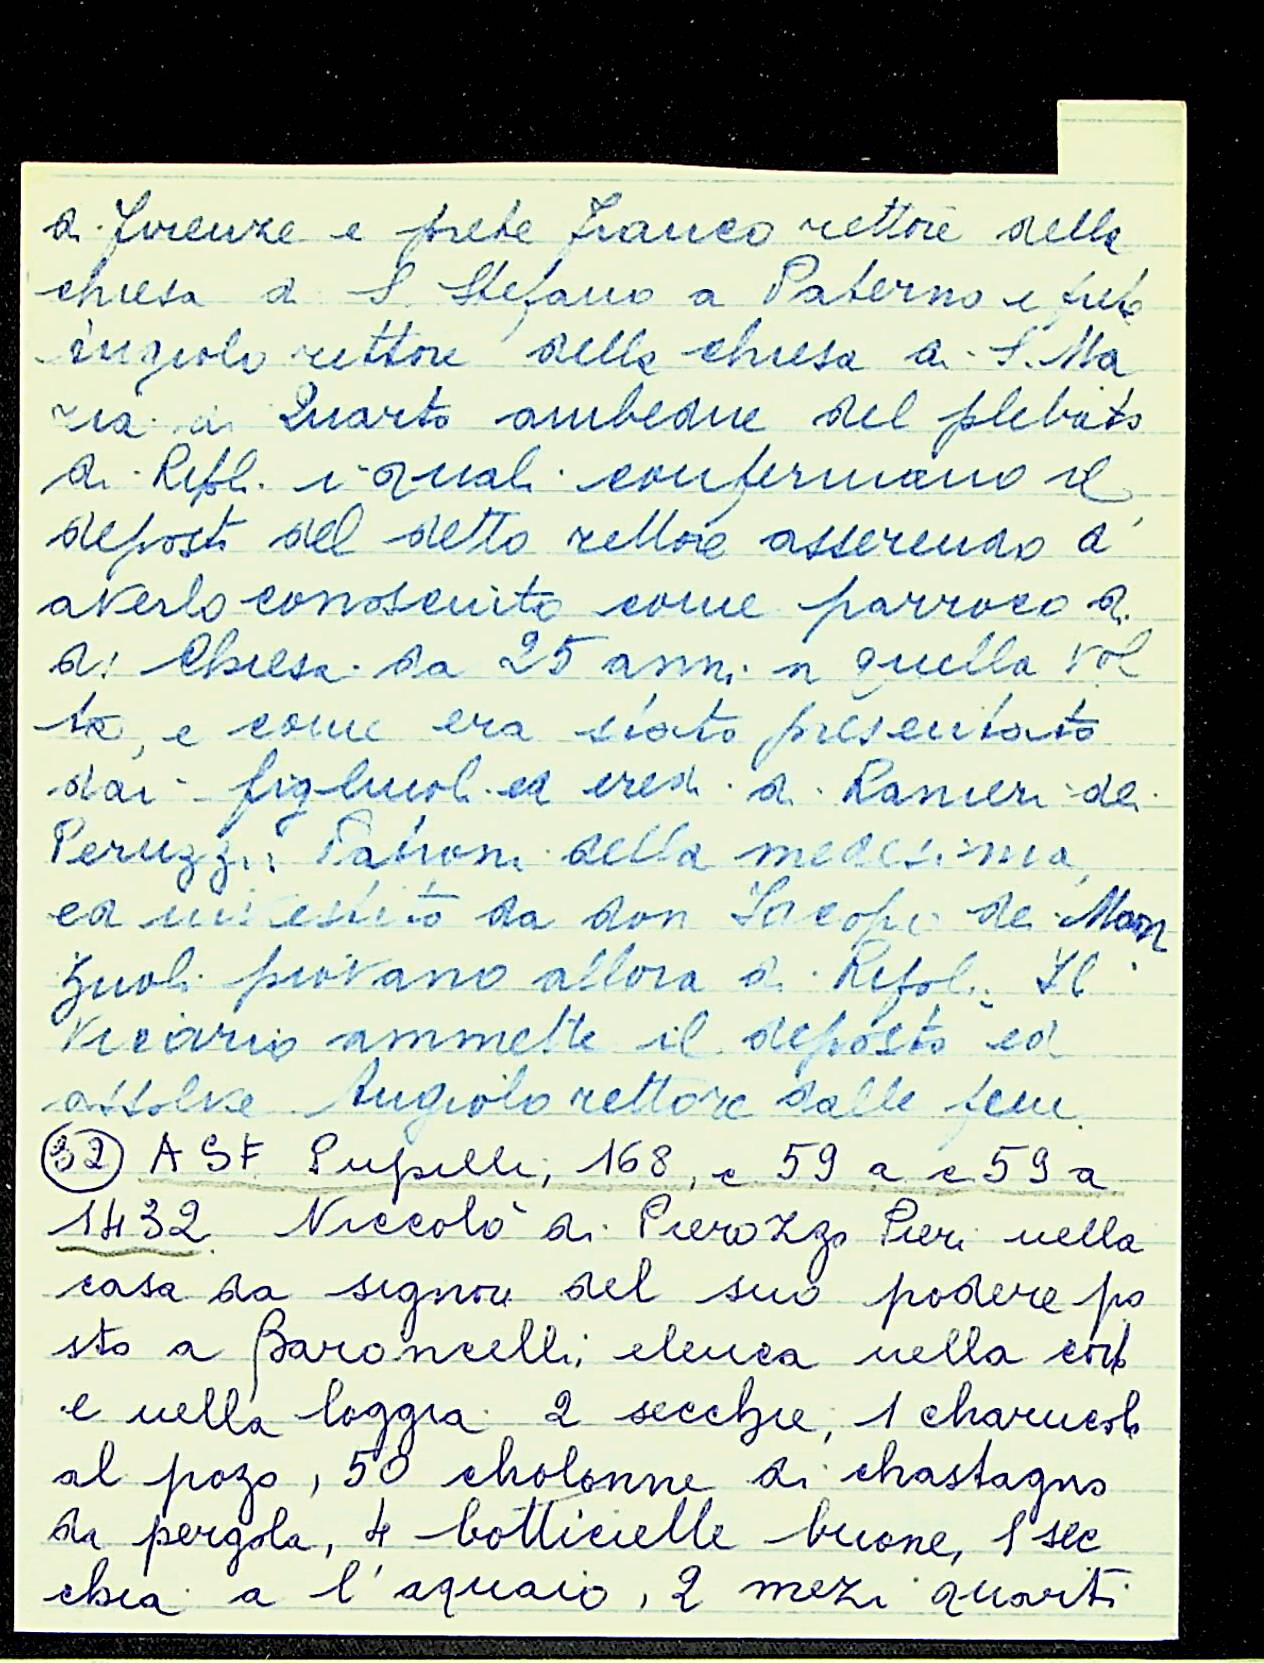 di Firenze e prete Franco rettore della
chiesa di S. Stefano a Paterno e prete
Angiolo rettore della chiesa di S. Ma
ria a Quarto ambedue del plebato
di Ripoli i quali confermano il
deposto del detto rettore asserendo di
averlo conosciuto come parroco di
di Chiesa da 25 anni in quella vol
ta, e come era stato presentato
dai figliuoli ed eredi di Ranieri dei
Peruzzi Patroni della medesima
ed investito da don Jacopo dei Man
zuoli piovano allora di Ripoli. Il
Vicario ammette il deposto ed
assolve Angiolo rettore dalle pene.
32 ASF Pupilli, 168, c 59 a c 59 a
1432 Niccolò di Pierozzo Pieri nella
casa da signore del suo podere po
sto a Baroncelli, elenca nella corte
e nella loggia 2 secchie, 1 charucola
al pozo, 50 cholonne di chastagno
da pergola, 4 botticielle buone, 1 sec
chia a l'aquaio, 2 mezi quarti